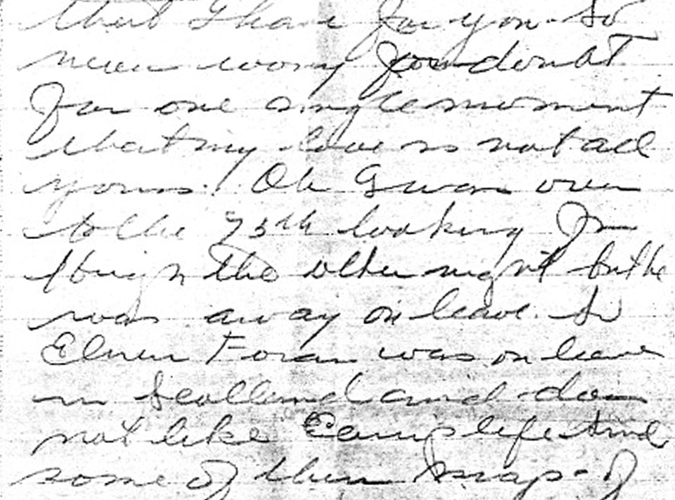 that I have for you. So
never worry for doubt
for one single moment
that my love is not all
yours. Oh I was over
to the 75th looking for
the other night but he
was away on leave. So
Elmer Foran was on leave
in Scotland and does
not like Camp life and
some of them